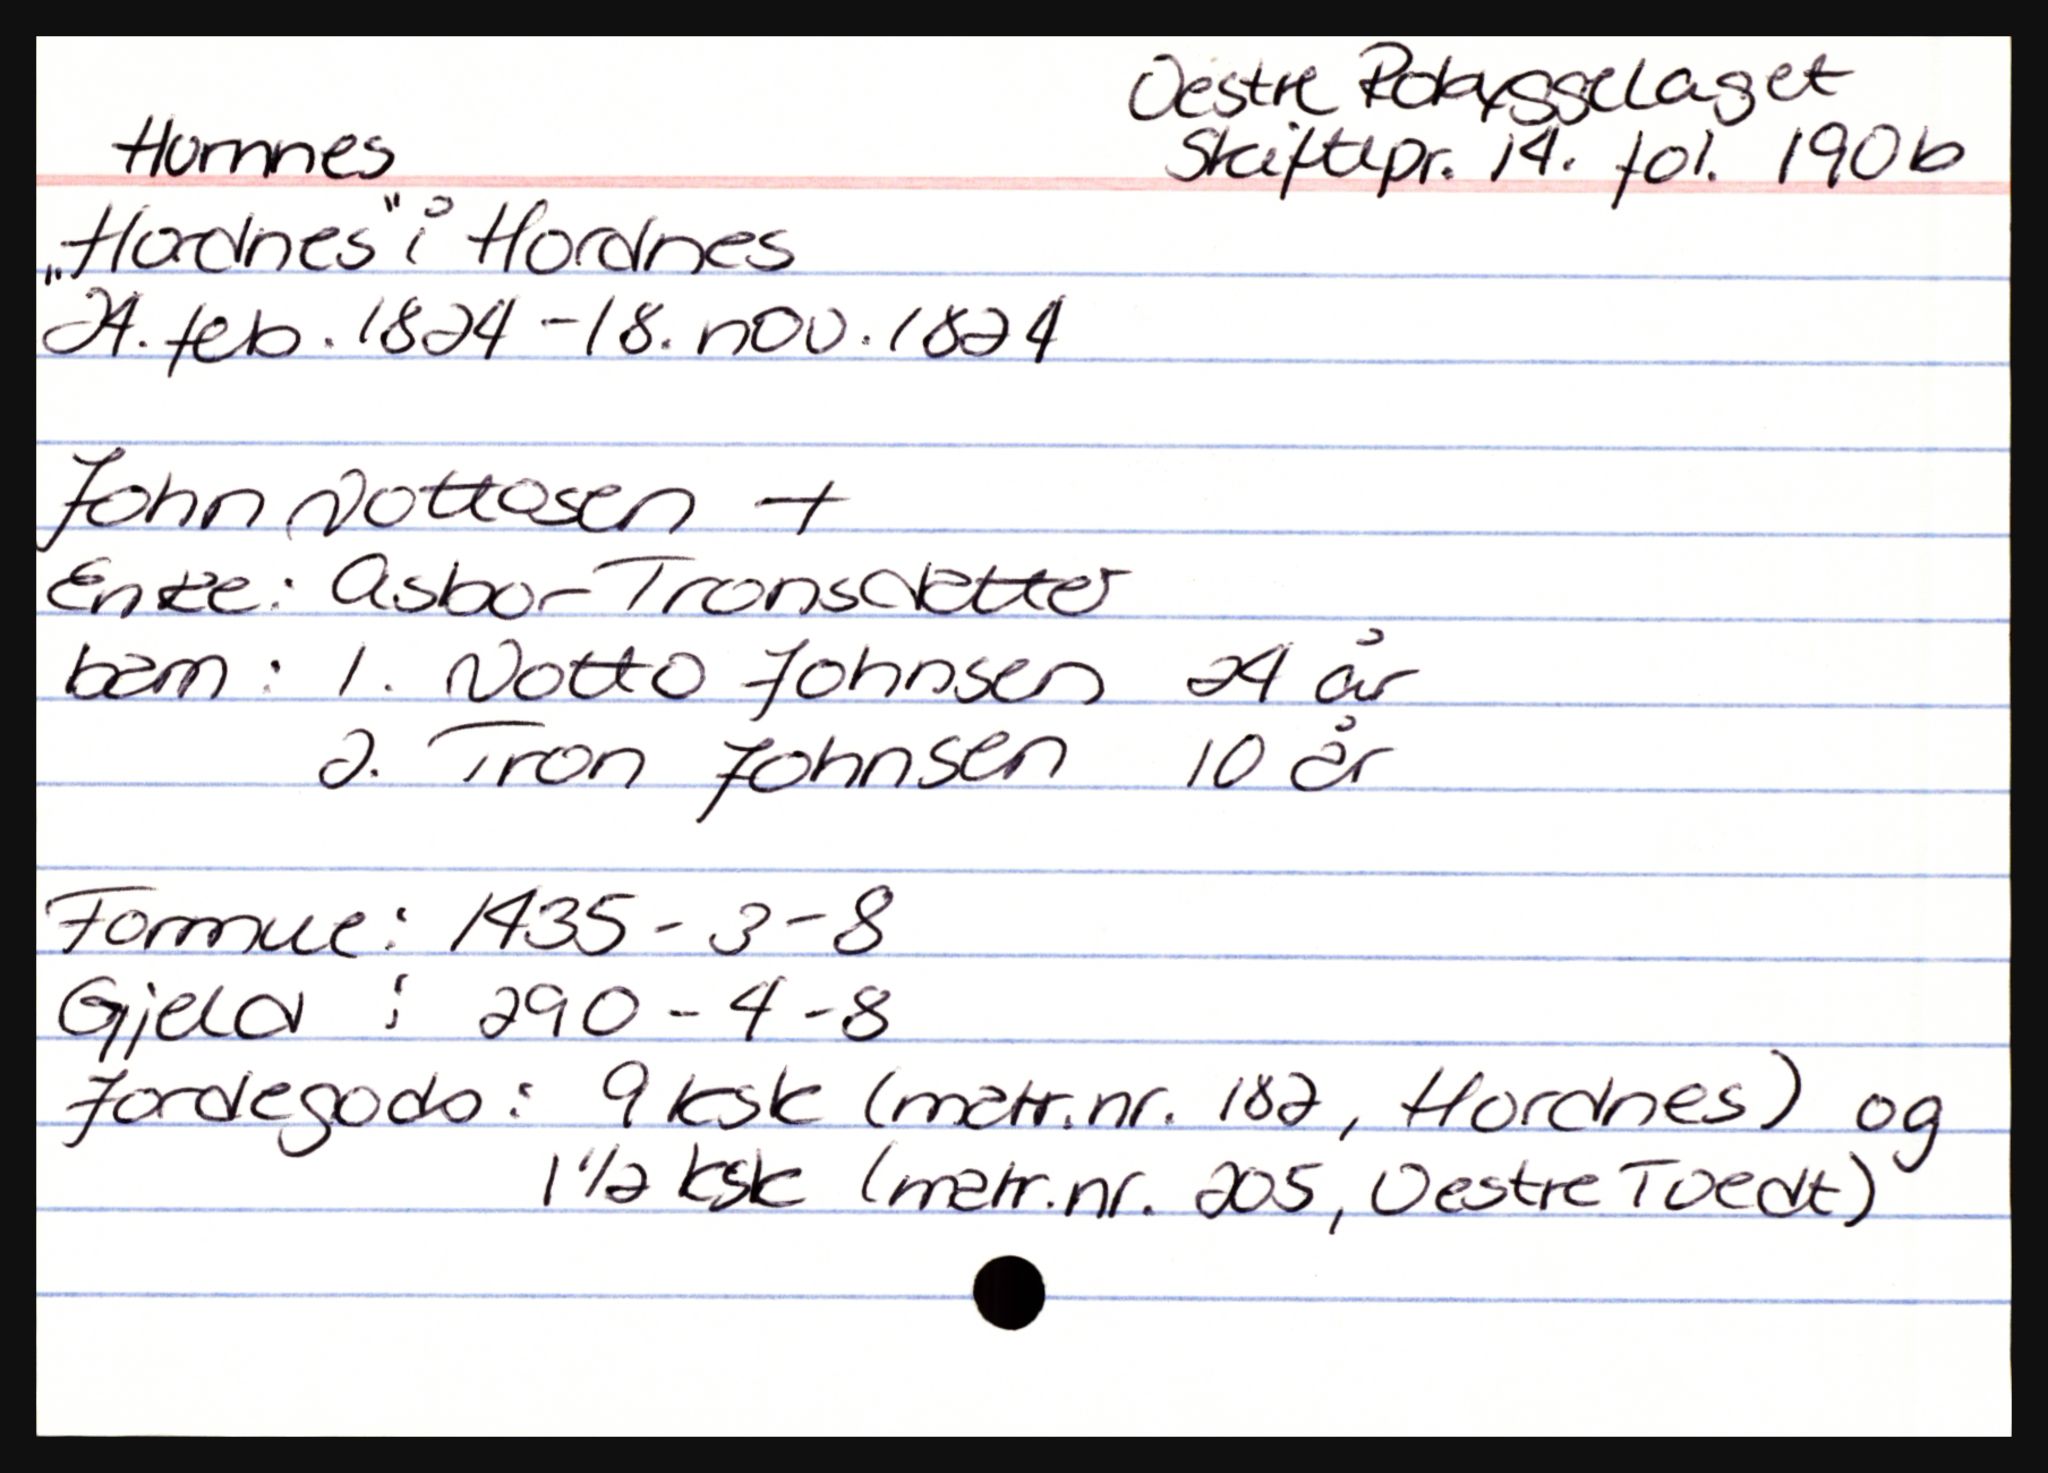 Oestre Robyggelaget
Homnes Skiftepr. 14. fol. 190b
„Hordnes" i Hordnes
24. feb. 1824 - 18. nov. 1824
John Nottosen +
Enke: Asbor Tronsdatter
barn: 1. Notto Johnsen 24 år
2. Tron Johnsen 10 år
Formue: 1435 - 3 - 8
Gjeld : 290 - 4 - 8
Jordegods: 9 ksk (matr.nr. 182, Hordnes) og
1 1/2 ksk (matr.nr. 205, Oestre Tvedt)